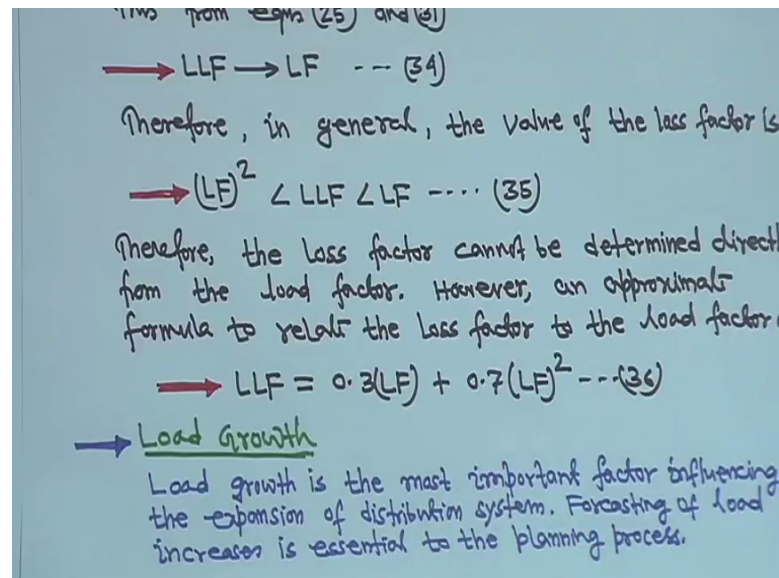 Thus from eqns (25) and (31)
→ LLF → LF --- (34)
Therefore, in general, the value of the loss factor is
→ (LF)² < LLF < LF ---- (35)
Therefore, the loss factor cannot be determined direct
from the load factor. However, an approximate
formula to relate the loss factor to the load factor
→ LLF = 0.3(LF) + 0.7(LF)² ---(36)
→ Load Growth
Load growth is the most important factor influencing
the expansion of distribution system. Forcasting of load
increases is essential to the planning process.